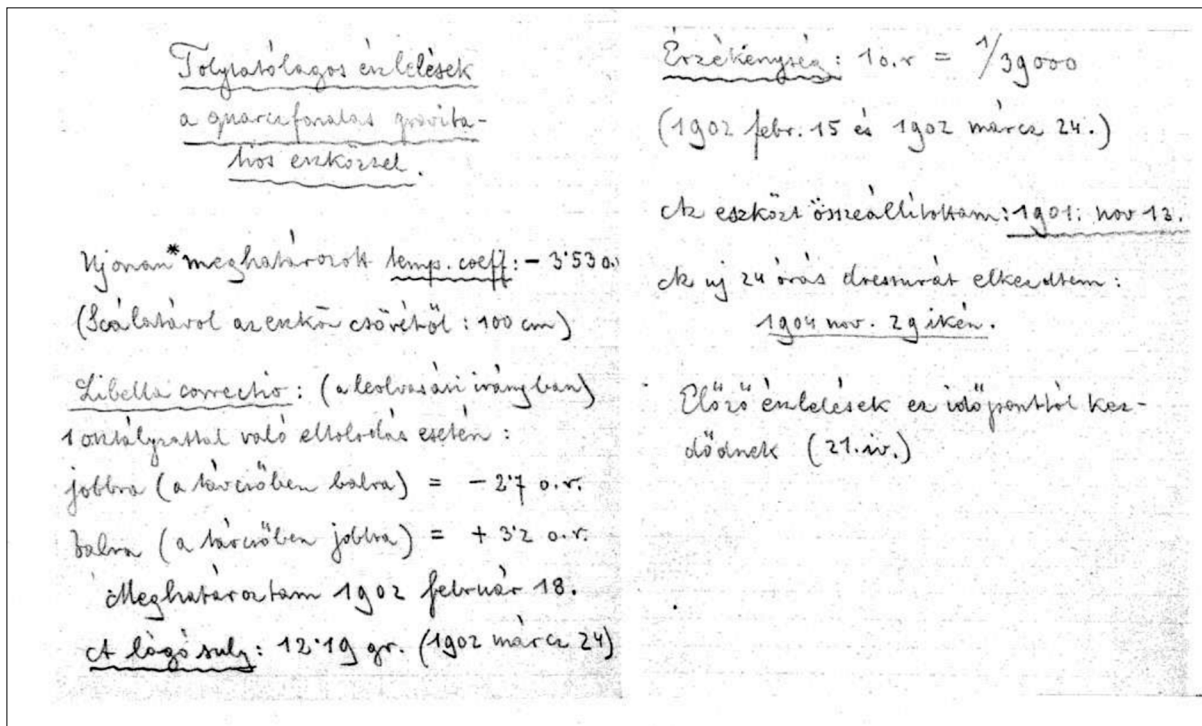 Folytatólagos észlelések
a quarczfonalas gravita-
tiós eszközzel.
Ujonan* meghatározott temp. coeff: - 3·53 o.
(Scálatávol az eszköz csövétől : 100 cm)
Libella correctio : (a leolvasási irányban)
1 osztályzattal való eltolódás esetén :
jobbra (a távcsőben balra) = - 2·7 o.r.
balra (a távcsőben jobbra) = + 3·2 o.r.
Meghatároztam 1902 február 18.
A lógó suly : 12·19 gr. (1902 márcz 24)
Érzékenység : 1 o.r = 1/39000
(1902 febr. 15 és 1902 márcz 24.)
Az eszközt összeállítottam : 1901. nov 13.
Az uj 24 órás dressurát elkezdtem :
1904 nov. 29 ikén.
Előző észlelések ez időponttól kez-
dődnek (21. iv.)